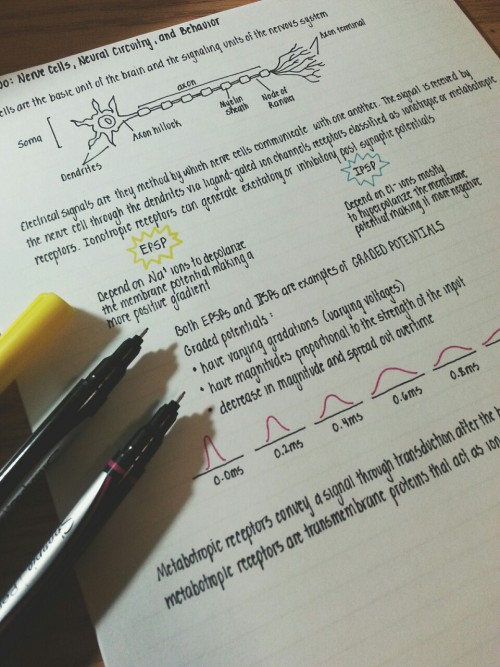 Do: Nerve Cells, Neural Circuitry, and Behavior
cells are the basic unit of the brain and the signaling units of the nervous system
Axon terminal
axon
Soma
Myelin
sheath
Node of
Ranvier
Axon hillock
Dendrites
Electrical signals are they method by which nerve cells communicate with one another. The signal is received by
the nerve cell through the dendrites via ligand-gated ion channels receptors classified as ionotropic or metabotropic
receptors. Ionotropic receptors can generate excitatory or inhibitory post synaptic potentials
EPSP
IPSP
Depend on Na⁺ ions to depolarize
the membrane potential making a
more positive gradient
Depend on Cl⁻ ions mostly
to hyperpolarize the membrane
potential making it more negative
Both EPSPs and IPSPs are examples of GRADED POTENTIALS
Graded potentials:
• have varying gradations (varying voltages)
• have magnitudes proportional to the strength of the input
• decrease in magnitude and spread out overtime
0.0ms
0.2ms
0.4ms
0.6ms
0.8ms
Metabotropic receptors convey a signal through transduction after the
metabotropic receptors are transmembrane proteins that act as